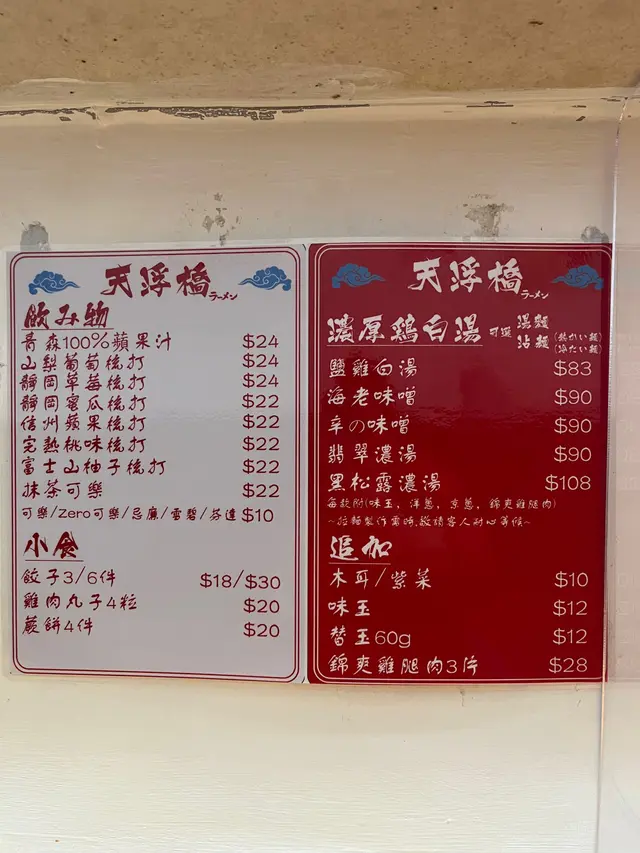 天浮橋
ラーメン
飲み物
青森100%蘋果汁 $24
山梨葡萄梳打 $24
靜岡草莓梳打 $24
靜岡蜜瓜梳打 $22
信州蘋果梳打 $22
完熟桃味梳打 $22
富士山柚子梳打 $22
抹茶可樂 $22
可樂/Zero可樂/忌廉/雪碧/芬達 $10
小食
餃子3/6件 $18/$30
雞肉丸子4粒 $20
蕨餅4件 $20
天浮橋
ラーメン
濃厚鶏白湯 可選 湯麵(熱かい麺)
沾麵(冷たい麺)
鹽雞白湯 $83
海老味噌 $90
辛の味噌 $90
翡翠濃湯 $90
黑松露濃湯 $108
每款附(味玉, 洋蔥, 京蔥, 錦爽雞腿肉)
~拉麵製作需時,敬請客人耐心等候~
追加
木耳/紫菜 $10
味玉 $12
替玉60g $12
錦爽雞腿肉3片 $28